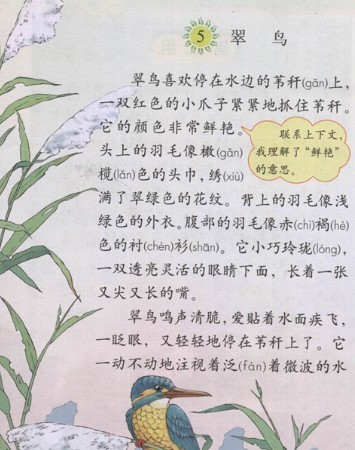 5 翠鸟
翠鸟喜欢停在水边的苇秆(gǎn)上，
一双红色的小爪子紧紧地抓住苇秆。
它的颜色非常鲜艳。
头上的羽毛像橄(gǎn)
榄(lǎn)色的头巾，绣(xiù)
满了翠绿色的花纹。背上的羽毛像浅
绿色的外衣。腹部的羽毛像赤(chì)褐(hè)
色的衬(chèn)衫(shān)。它小巧玲珑(lóng)，
一双透亮灵活的眼睛下面，长着一张
又尖又长的嘴。
翠鸟鸣声清脆，爱贴着水面疾飞，
一眨眼，又轻轻地停在苇秆上了。它
一动不动地注视着泛(fàn)着微波的水
联系上下文，
我理解了“鲜艳”
的意思。